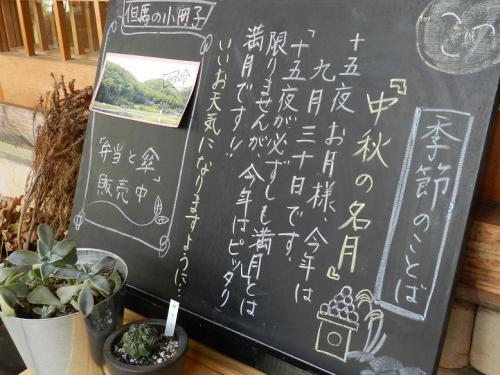 季節のことば
『中秋の名月』
十五夜お月様、今年は
九月三十日です。
「十五夜が必ずしも満月とは
限りませんが、今年はピッタリ
満月です!!
いいお天気になりますように…
但馬の小冊子
「弁当と傘」
販売中